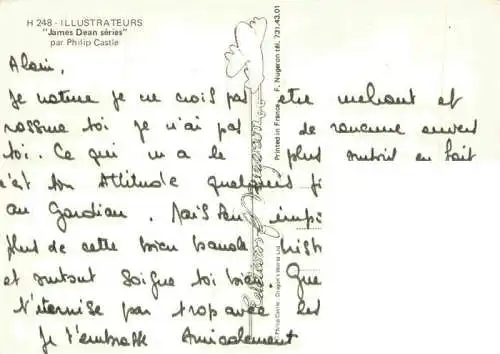 H 248 - ILLUSTRATEURS
"James Dean séries"
par Philip Castle
Alain,
Je nature je ne crois pas etre mechant et
rassure toi je n'ai pas de rancune envers
toi. Ce qui m a le plus surtout en fait
c'est ton Attitude quelques fi
au Gardian. Mais sans impi
plus de cette bien banale hist
et surtout soigne toi bien. Que
t'eternise pas trop avec les
Je t'embrasse Amicalement
Printed in France - F. Nugeron tél. 731.43.01
Editions F. Nugeron
Philip Castle - Dragon's World Ltd